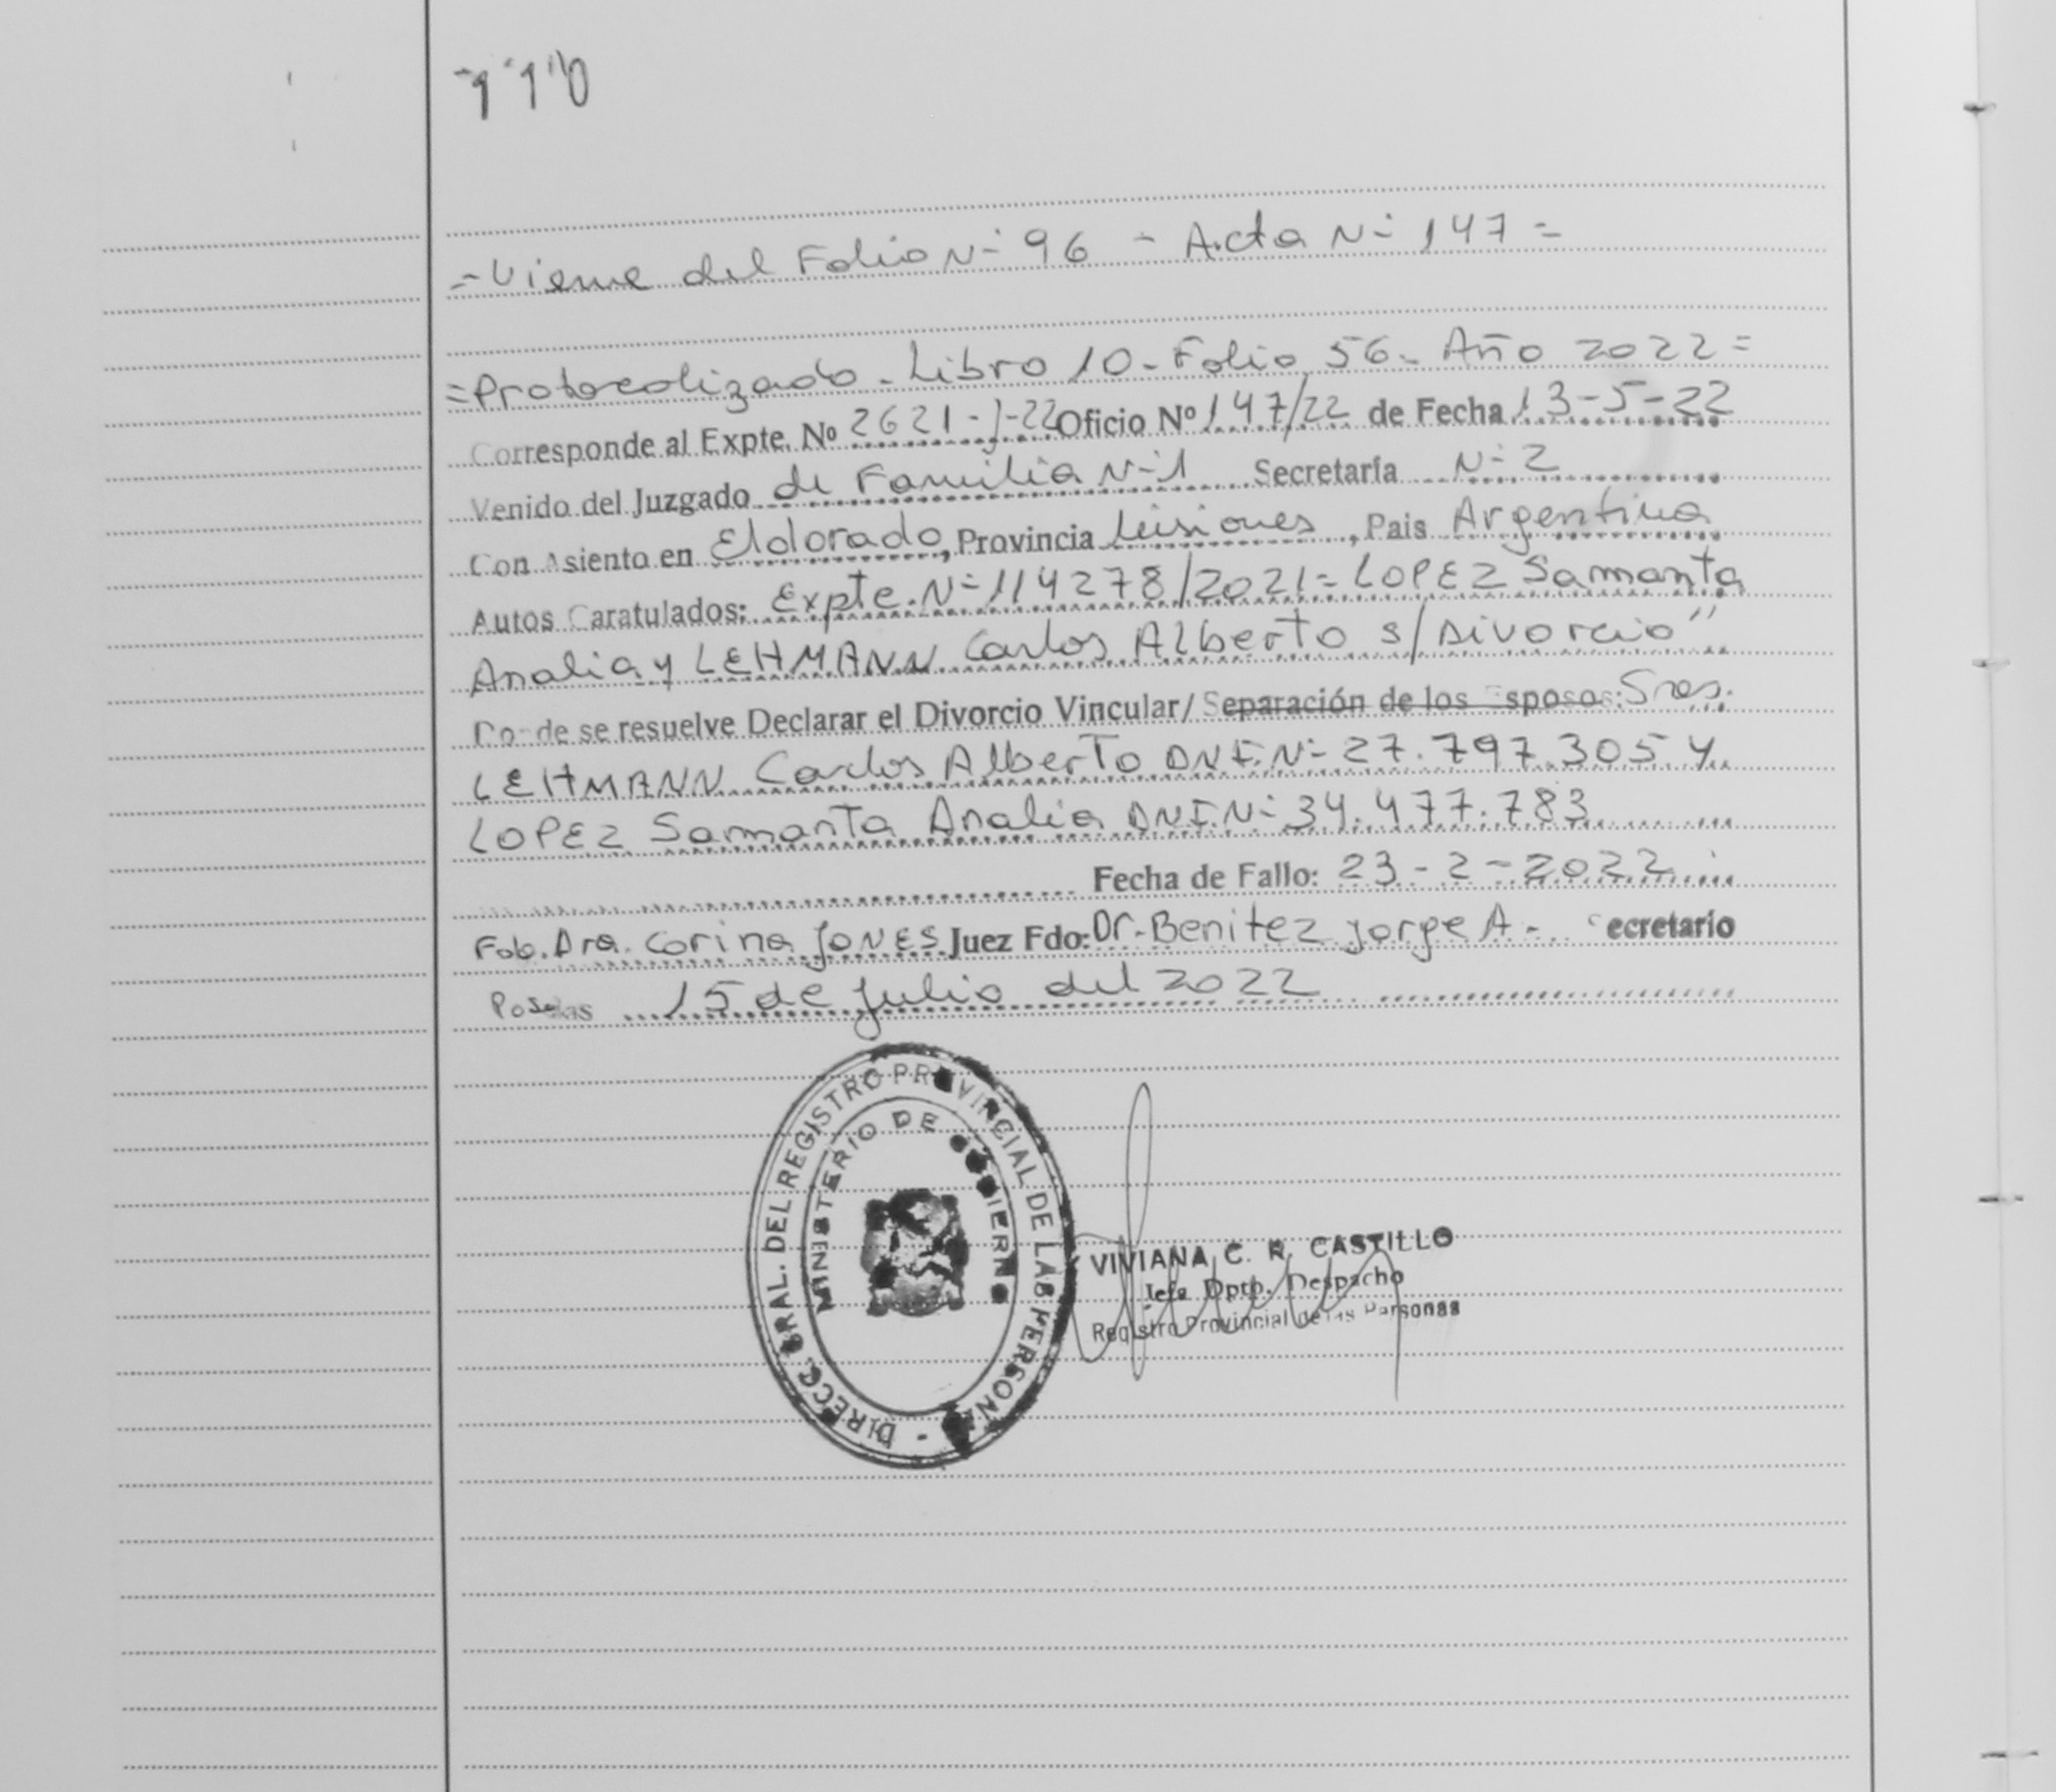 110
= Viene del Folio N- 96 - Acta N- 147 =
= Protocolizado - Libro 10 - Folio 56 - Año 2022 =
Corresponde al Expte. Nº 2621-J-22 Oficio Nº 147/22 de Fecha 13-5-22
Venido del Juzgado de Familia N-1 Secretaría N- 2
Con Asiento en Eldorado, Provincia Misiones, Pais Argentina
Autos Caratulados: Expte. N- 114278/2021 = LOPEZ Samanta
Analia y LEHMANN Carlos Alberto s/Divorcio"
Donde se resuelve Declarar el Divorcio Vincular/ Separación de los Esposos: Sres.
LEHMANN Carlos Alberto DNI.N- 27.797.305 y
LOPEZ Samanta Analia DNI.N- 34.477.783
Fecha de Fallo: 23-2-2022
Fdo. Dra. Corina JONES Juez Fdo: Dr. Benitez Jorge A. Secretario
Posadas 15 de Julio del 2022
DIRECC. GRAL. DEL REGISTRO PROVINCIAL DE LAS PERSONAS -
MINISTERIO DE GOBIERNO
VIVIANA C. R. CASTILLO
Jefa Dpto. Despacho
Registro Provincial de las Personas